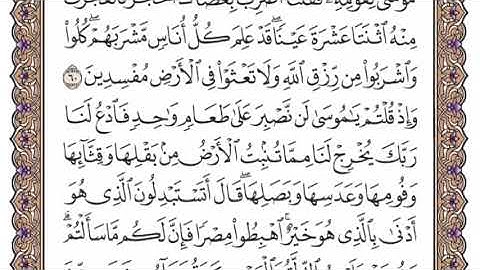 مُوسَىٰ لِقَوْمِهِۦ فَقُلْنَا ٱضْرِب بِّعَصَاكَ ٱلْحَجَرَۖ فَٱنفَجَرَتْ
مِنْهُ ٱثْنَتَا عَشْرَةَ عَيْنًاۖ قَدْ عَلِمَ كُلُّ أُنَاسٍ مَّشْرَبَهُمْۖ كُلُوا۟
وَٱشْرَبُوا۟ مِن رِّزْقِ ٱللَّهِ وَلَا تَعْثَوْا۟ فِى ٱلْأَرْضِ مُفْسِدِينَ ٦٠
وَإِذْ قُلْتُمْ يَٰمُوسَىٰ لَن نَّصْبِرَ عَلَىٰ طَعَامٍ وَٰحِدٍ فَٱدْعُ لَنَا
رَبَّكَ يُخْرِجْ لَنَا مِمَّا تُنۢبِتُ ٱلْأَرْضُ مِنۢ بَقْلِهَا وَقِثَّآئِهَا
وَفُومِهَا وَعَدَسِهَا وَبَصَلِهَاۖ قَالَ أَتَسْتَبْدِلُونَ ٱلَّذِى هُوَ
أَدْنَىٰ بِٱلَّذِى هُوَ خَيْرٌۚ ٱهْبِطُوا۟ مِصْرًا فَإِنَّ لَكُم مَّا سَأَلْتُمْۗ